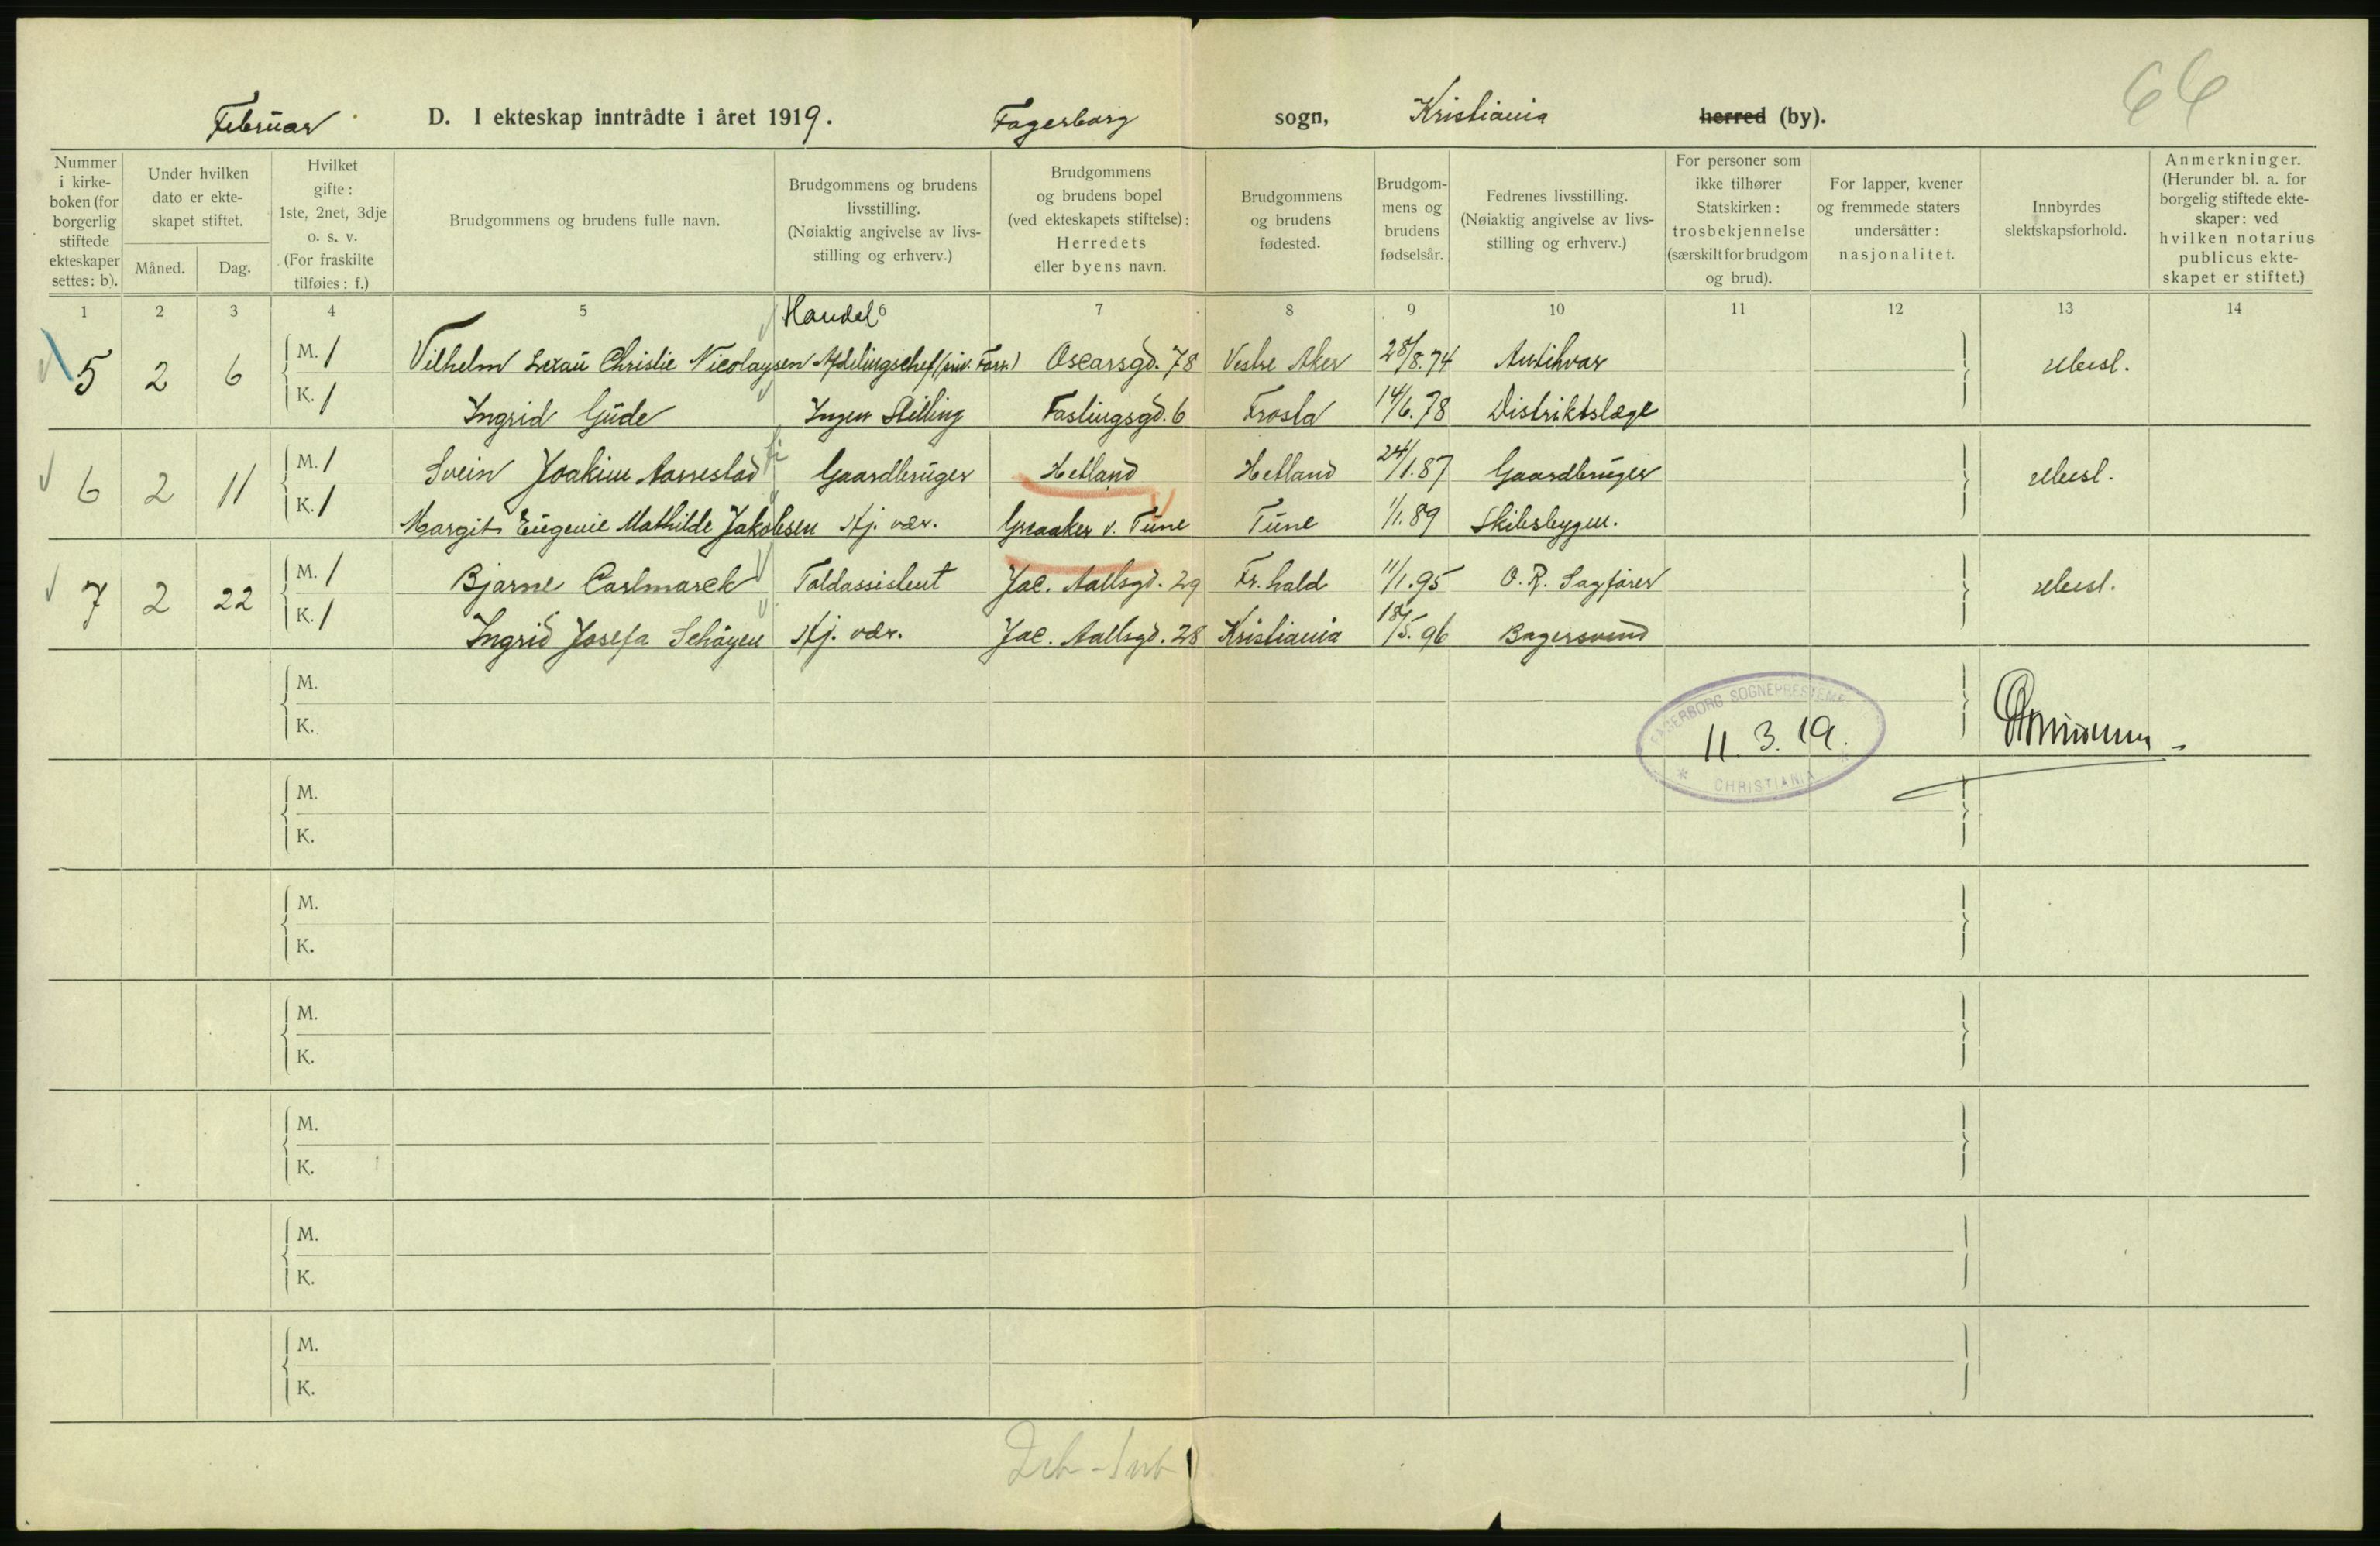 Februar D. I ekteskap inntrådte i året 1919. Fagerborg sogn, Kristiania herred (by). 66
Nummer i kirkeboken (for borgerlig stiftede ekteskaper settes: b).
Under hvilken dato er ekteskapet stiftet.
Måned. Dag.
Hvilket gifte: 1ste, 2net, 3dje o. s. v. (For fraskilte tilføies: f.)
Brudgommens og brudens fulle navn.
Brudgommens og brudens livsstilling. (Nøiaktig angivelse av livsstilling og erhverv.)
Brudgommens og brudens bopel (ved ekteskapets stiftelse): Herredets eller byens navn.
Brudgommens og brudens fødested.
Brudgommens og brudens fødselsår.
Fedrenes livsstilling. (Nøiaktig angivelse av livsstilling og erhverv.)
For personer som ikke tilhører Statskirken: trosbekjennelse (særskilt for brudgom og brud).
For lapper, kvener og fremmede staters undersåtter: nasjonalitet.
Innbyrdes slektskapsforhold.
Anmerkninger. (Herunder bl. a. for borgelig stiftede ekteskaper: ved hvilken notarius publicus ekteskapet er stiftet.)
1 2 3 4 5 6 7 8 9 10 11 12 13 14
Handel
5 2 6 M. 1 Vilhelm Christie Nicolaysen Afdelingschef (priv. Forr.) Oscarsgd. 78 Vestre Aker 28/8.74 Antikvar ubesl.
K. 1 Ingrid Gude Ingen Stilling Fastingsgd. 6 Frosta 14/6.78 Distriktslæge
6 2 11 M. 1 Svein Joakim Aarrestad Gaardbruger Hetland Hetland 24/1.87 Gaardbruger ubesl.
K. 1 Margit Eugenie Mathilde Jakobsen Hj. vær. Greaaker v. Tune Tune 1/1.89 Skibsbygm.
7 2 22 M. 1 Bjarne Carlmarck Toldassistent Jac. Aallsgd. 29 Fr.hald 11/1.95 O. R. Sagfører ubesl.
K. 1 Ingrid Josefa Schøyen Hj. vær. Jac. Aallsgd. 28 Kristiania 18/5.96 Bagersvend
M.
K.
FAGERBORG SOGNEPRESTEMB
11. 3. 19.
CHRISTIANIA
M.
K.
M.
K.
M.
K.
M.
K.
M.
K.
M.
K.